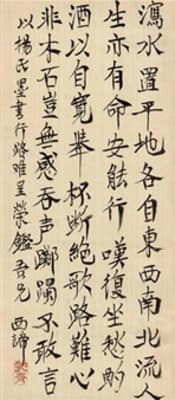 瀉水置平地各自東西南北流人
生亦有命安能行嘆復坐愁酌
酒以自寬舉杯斷絕歌路難心
非木石豈無感吞声躑躅不敢言
以楊氏墨書行路难呈榮鑑吾兄 西諦